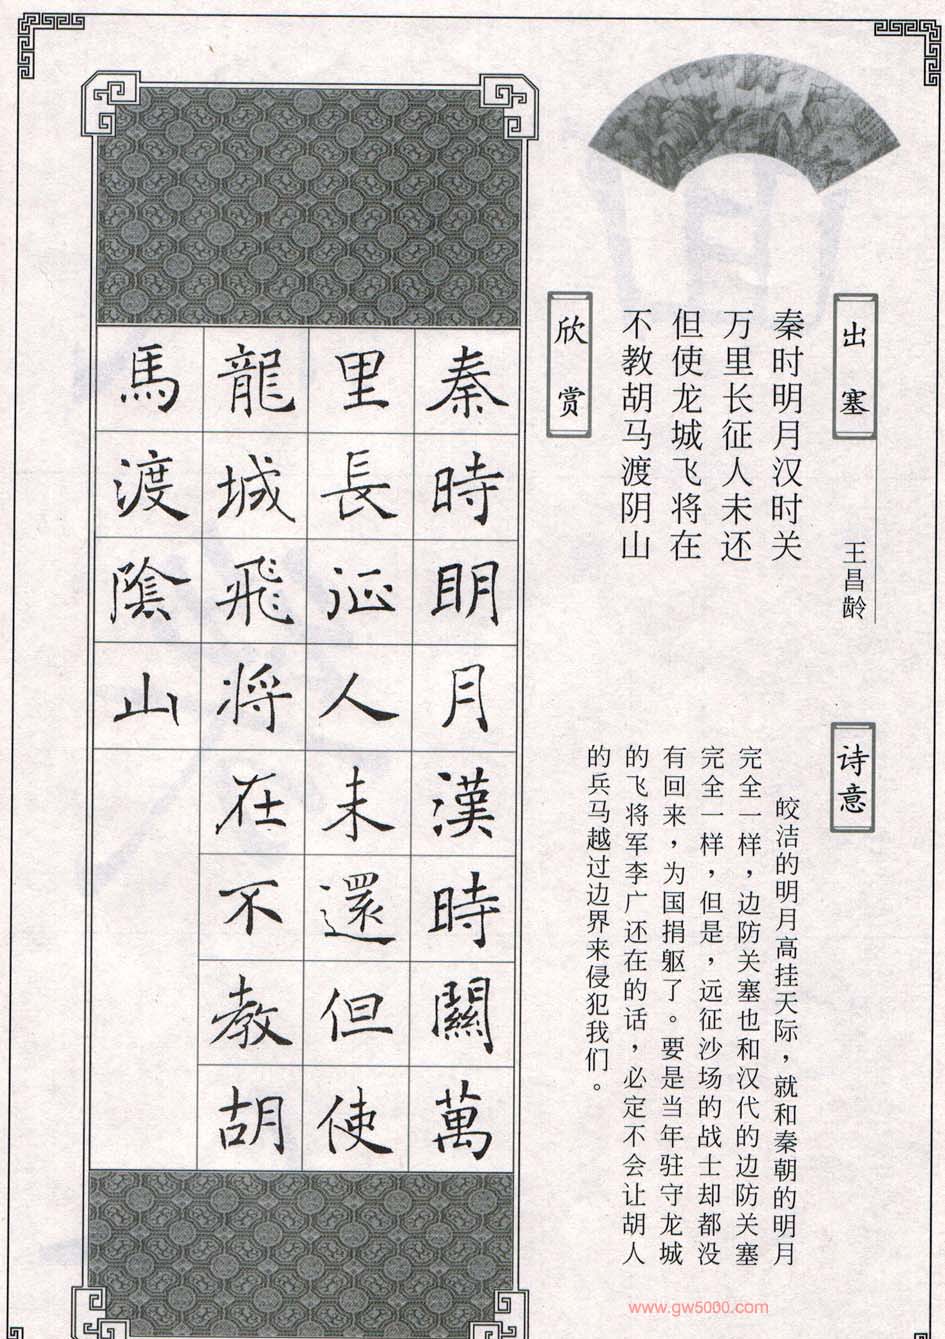 出塞
王昌龄
秦时明月汉时关
万里长征人未还
但使龙城飞将在
不教胡马渡阴山
诗意
皎洁的明月高挂天际，就和秦朝的明月
完全一样，边防关塞也和汉代的边防关塞
完全一样，但是，远征沙场的战士却都没
有回来，为国捐躯了。要是当年驻守龙城
的飞将军李广还在的话，必定不会让胡人
的兵马越过边界来侵犯我们。
欣赏
秦時明月漢時關萬
里長征人未還但使
龍城飛将在不教胡
馬渡陰山
www.gw5000.com